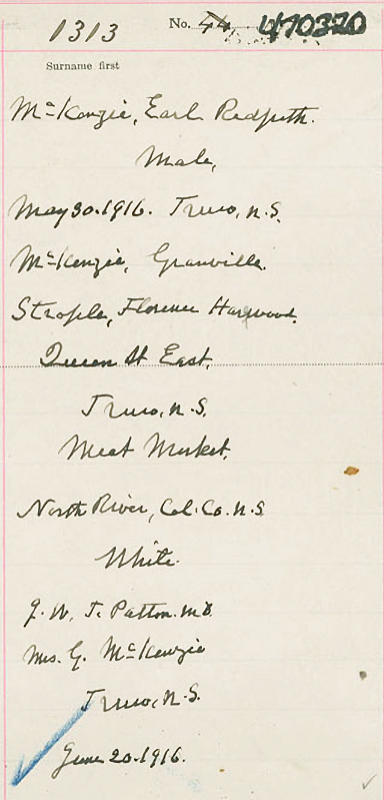 1313 No. 44 470320
Surname first
McKenzie, Earl Redpath.
Male,
May 30. 1916. Truro, N.S.
McKenzie, Granville.
Strople, Florence Harwood.
Queen St East,
Truro, N.S.
Meat Market.
North River, Col. Co. N.S.
White.
J. W. T. Patton. M.D.
Mrs. G. McKenzie
Truro, N.S.
June 20. 1916.